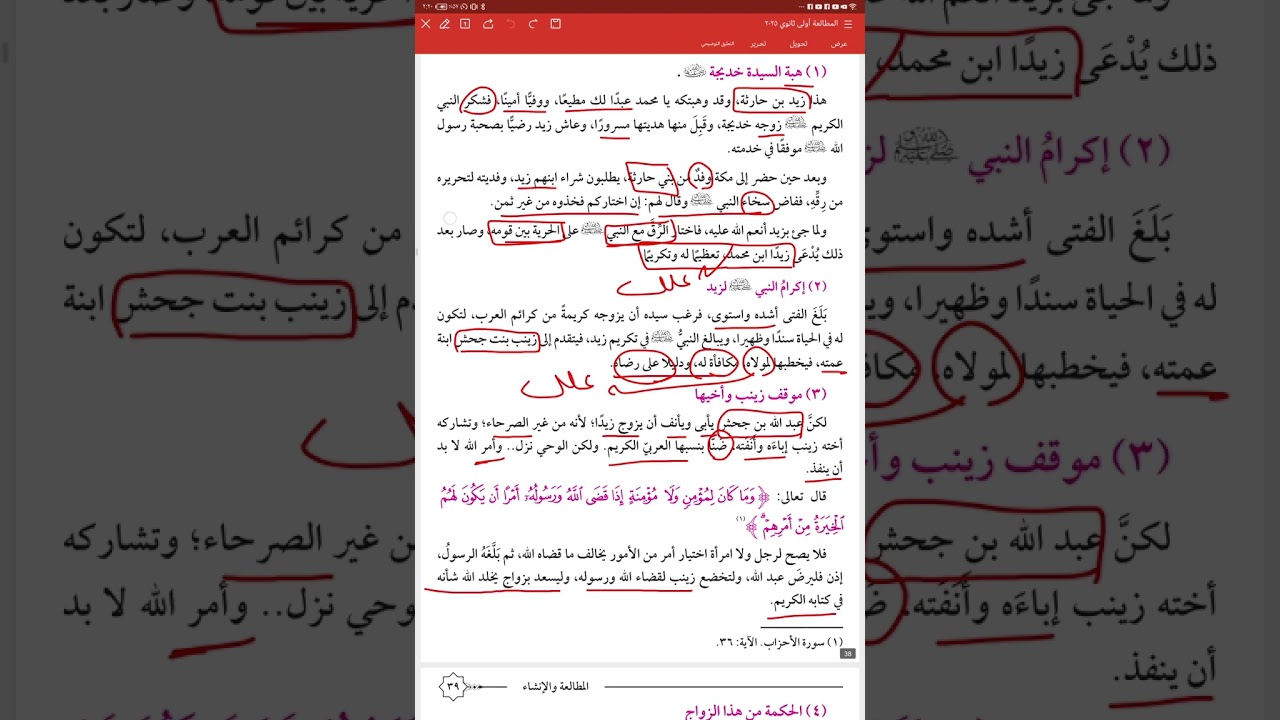 ٢:٢٠
٪٥٧
المطالعة أولى ثانوي ٢٠٢٥
عرض تحويل تحرير التعليق التوضيحي
(١) هبة السيدة خديجة ﷺ.
هذا زيد بن حارثة، وقد وهبتكه يا محمد عبدًا لك مطيعًا، ووفيًّا أمينًا، فشكر النبي
الكريم ﷺ زوجه خديجة، وقَبِلَ منها هديتها مسرورًا، وعاش زيد رضيًّا بصحبة رسول
الله ﷺ موفقًا في خدمته.
وبعد حين حضر إلى مكة وفدٌ من بني حارثة، يطلبون شراء ابنهم زيد، وفديته لتحريره
من رِقِّهِ، ففاض سخاء النبي ﷺ وقال لهم: إن اختاركم فخذوه من غير ثمن.
ولما جئ بزيد أنعم الله عليه، فاختار الرِّقَّ مع النبي ﷺ على الحرية بين قومه، وصار بعد
ذلك يُدْعَى زيدًا ابن محمد، تعظيمًا له وتكريمًا
علل
(٢) إكرامُ النبي ﷺ لزيد
بَلَغَ الفتى أشده واستوى، فرغب سيده أن يزوجه كريمةً من كرائم العرب، لتكون
له في الحياة سندًا وظهيرا، ويبالغ النبيُّ ﷺ في تكريم زيد، فيتقدم إلى زينب بنت جحش ابنة
عمته، فيخطبها لمولاه، مكافأة له، ودليلًا على رضاه.
علل
(٣) موقف زينب وأخيها
لكنَّ عبد الله بن جحش يأبى ويأنف أن يزوج زيدًا؛ لأنه من غير الصرحاء؛ وتشاركه
أخته زينب إباءَه وأَنَفَته، ضنًّا بنسبها العربيّ الكريم. ولكن الوحي نزل.. وأمر الله لا بد
أن ينفذ.
قال تعالى: ﴿وَمَا كَانَ لِمُؤْمِنٍ وَلَا مُؤْمِنَةٍ إِذَا قَضَى ٱللَّهُ وَرَسُولُهُۥٓ أَمْرًا أَن يَكُونَ لَهُمُ
ٱلْخِيَرَةُ مِنْ أَمْرِهِمْ﴾(١)
فلا يصح لرجل ولا امرأة اختيار أمر من الأمور يخالف ما قضاه الله، ثم بَلَّغَهُ الرسولُ،
إذن فليرضَ عبد الله، ولتخضع زينب لقضاء الله ورسوله، وليسعد بزواج يخلد الله شأنه
في كتابه الكريم.
(١) سورة الأحزاب. الآية: ٣٦.
38
المطالعة والإنشاء ٣٩
(٤) الحكمة من هذا الزواج